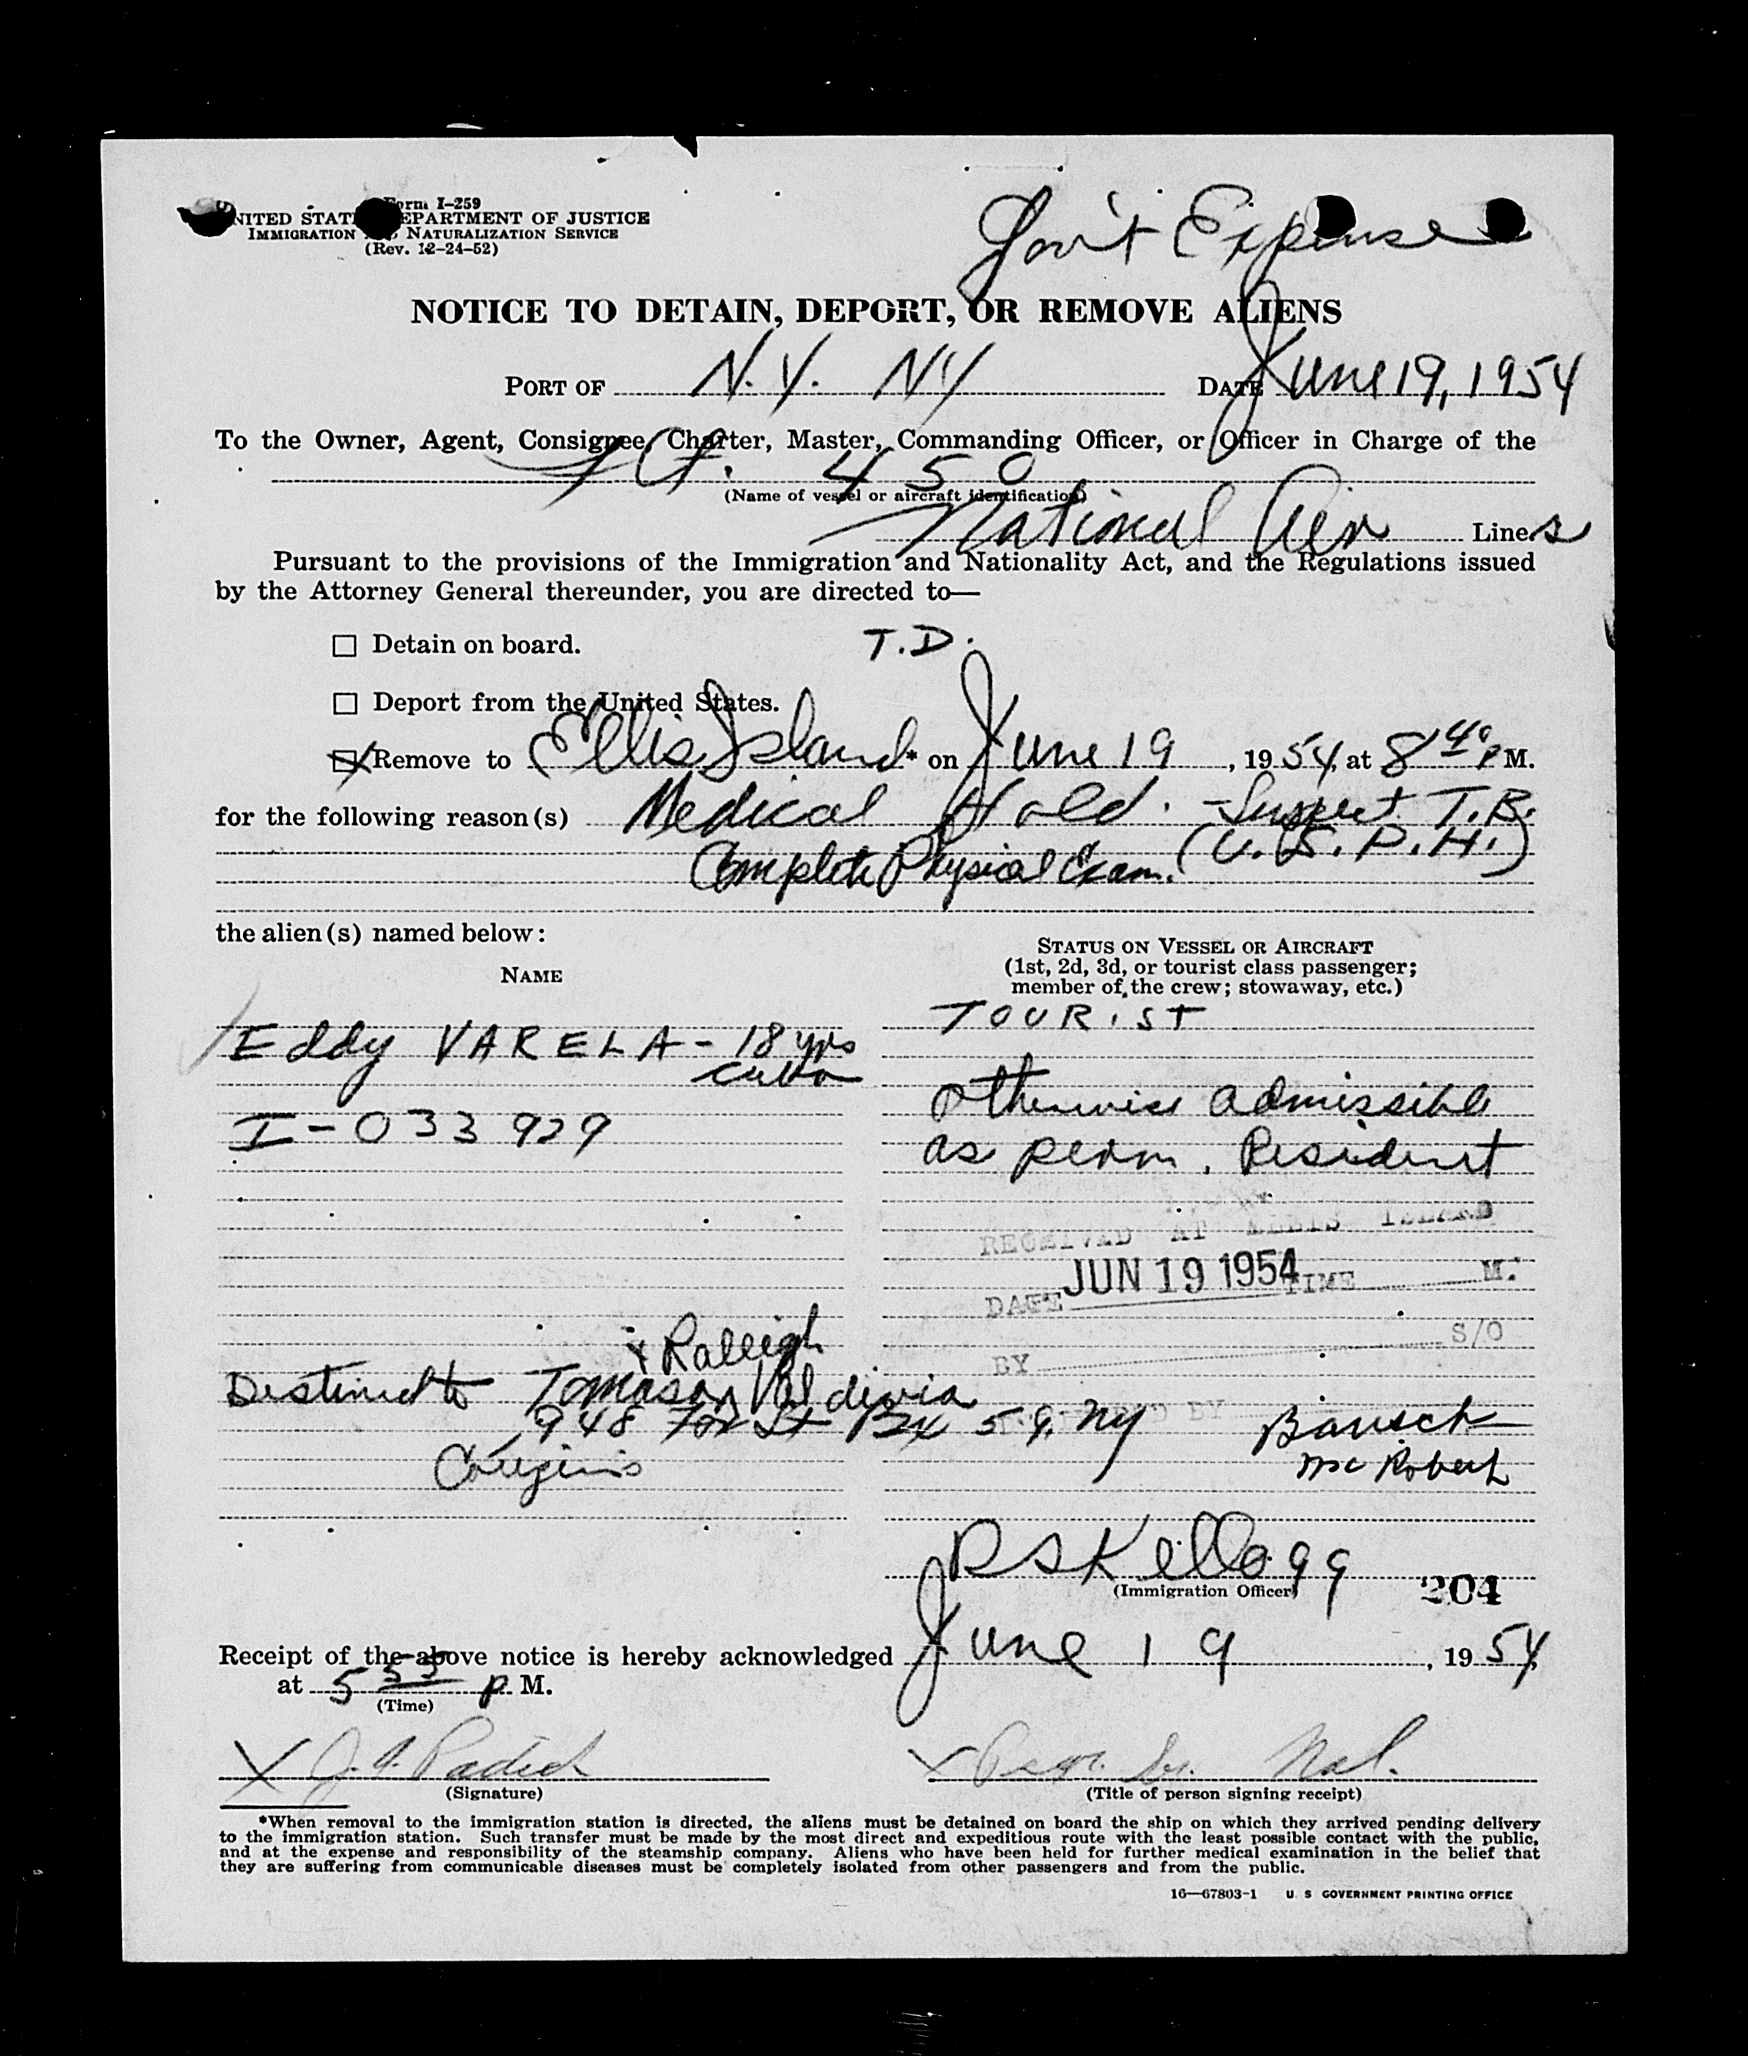 Form I-259
UNITED STATES DEPARTMENT OF JUSTICE
IMMIGRATION AND NATURALIZATION SERVICE
(Rev. 12-24-52)
Gov't Expense
NOTICE TO DETAIN, DEPORT, OR REMOVE ALIENS
PORT OF N.Y. NY DATE June 19, 1954
To the Owner, Agent, Consignee, Charter, Master, Commanding Officer, or Officer in Charge of the
450
(Name of vessel or aircraft identification)
National Air Lines
Pursuant to the provisions of the Immigration and Nationality Act, and the Regulations issued
by the Attorney General thereunder, you are directed to—
Detain on board. T.D.
Deport from the United States.
Remove to Ellis Island* on June 19, 1954, at 8 40 P M.
for the following reason(s) Medical Hold. - Suspect T.B.
(U.S.P.H.)
Complete Physical Exam.
the alien(s) named below:
NAME
STATUS ON VESSEL OR AIRCRAFT
(1st, 2d, 3d, or tourist class passenger;
member of the crew; stowaway, etc.)
TOURIST
Eddy VARELA - 18 yrs
Cuba
I-033 929
otherwise admissible
as perm. Resident
RECEIVED AT ELLIS ISLAND
DATE JUN 19 1954 TIME M.
S/O
BY
Raleigh
Destined to Tomasa Valdivia
948 Fox St Bx 59, NY
BY
Bausch
McRobert
RSKellogg
(Immigration Officer)
204
Receipt of the above notice is hereby acknowledged June 19, 1954,
at 5 55 P M.
(Time)
X J. A.
(Signature)
X Nal.
(Title of person signing receipt)
*When removal to the immigration station is directed, the aliens must be detained on board the ship on which they arrived pending delivery
to the immigration station. Such transfer must be made by the most direct and expeditious route with the least possible contact with the public,
and at the expense and responsibility of the steamship company. Aliens who have been held for further medical examination in the belief that
they are suffering from communicable diseases must be completely isolated from other passengers and from the public.
16—67803-1 U. S GOVERNMENT PRINTING OFFICE